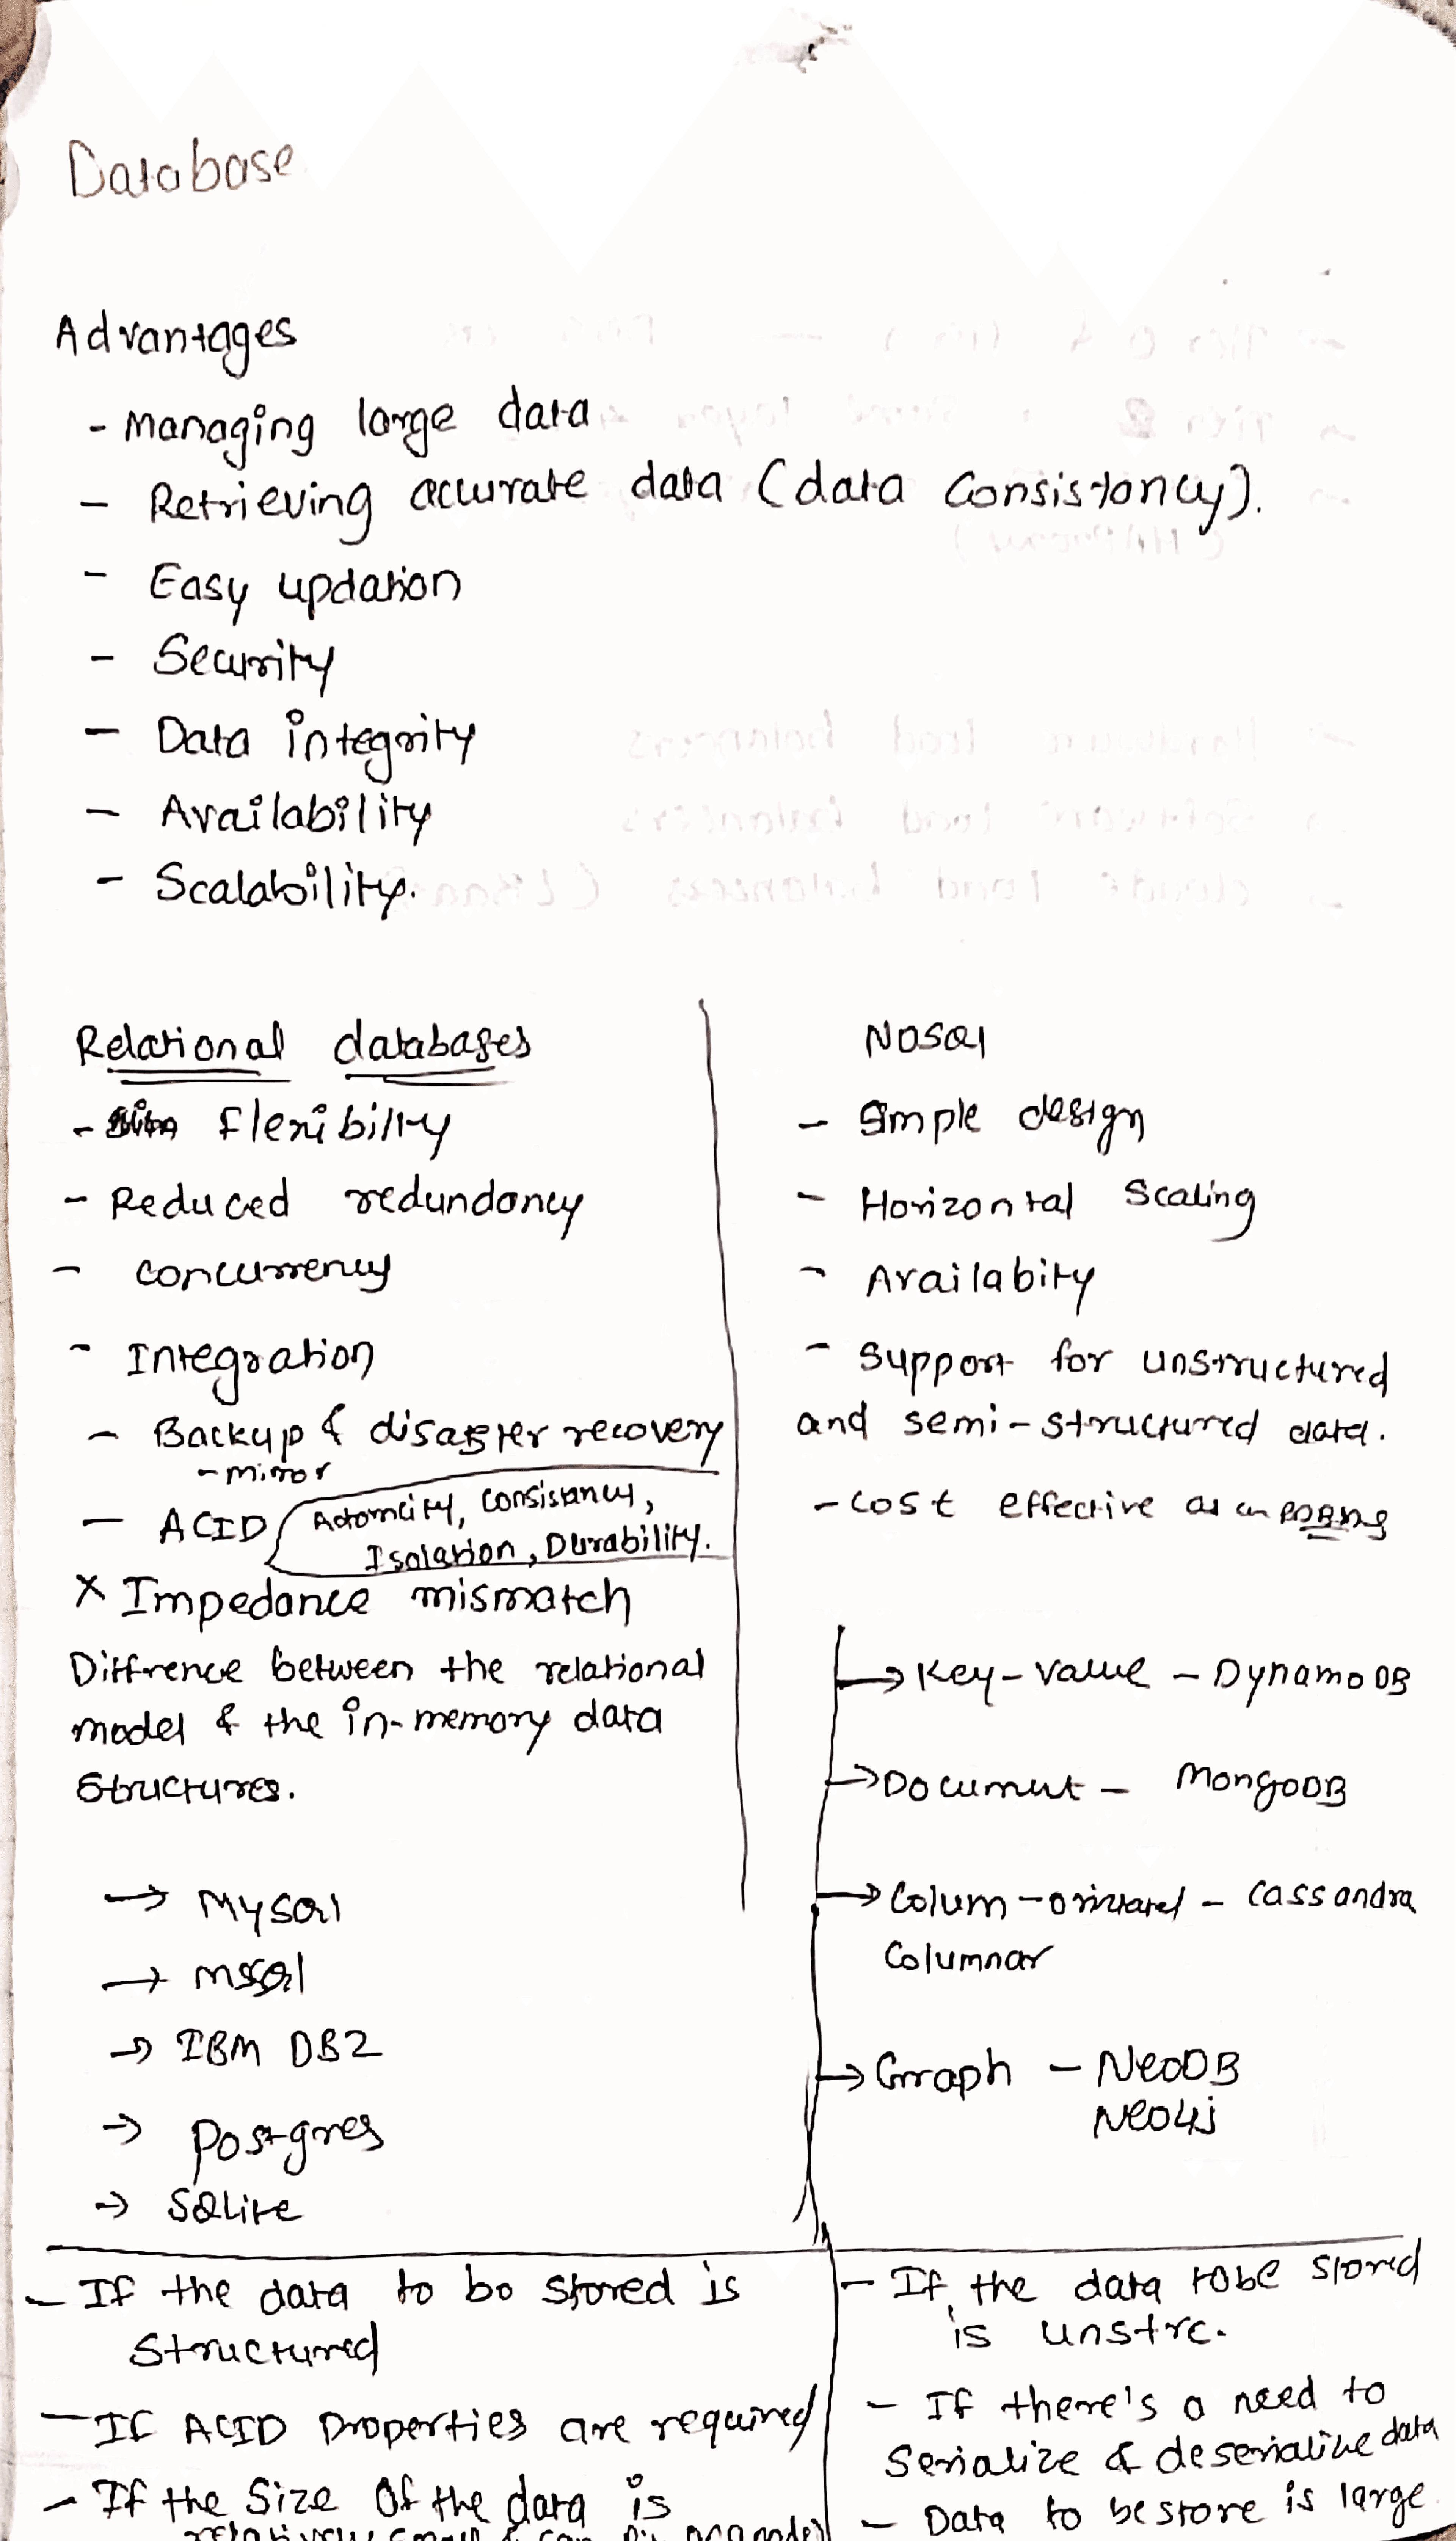 Database
Advantages
- Managing large data
- Retrieving accurate data (data Consistancy).
- Easy updation
- Security
- Data integrity
- Availability
- Scalability.
Relational databases
- flexibility
- Reduced redundancy
- concurrency
- Integration
- Backup & disaster recovery
- mirror
- ACID (Actomcity, Consistancy,
Isolation, Durability.
X Impedance mismatch
Diffrence between the relational
model & the in-memory data
Structures.
→ MySQl
→ mssql
→ IBM DB2
→ Postgres
→ SQLite
NOSQl
- Simple design
- Horizontal Scaling
- Availabity
- Support for unstructured
and semi-structured data.
- cost effective as
→ Key-value - Dynamo DB
→ Document - MongoDB
→ Colum-orientated - cassandra
Columnar
→ Graph - NeoDB
Neo4j
- If the data to be stored is
Structured
- If ACID Properties are required
- If the Size Of the data is
relatively small & can fit
- If the data tobe stored
is unstrc.
- If there's a need to
Serialize & deserialize data
- Data to be store is large